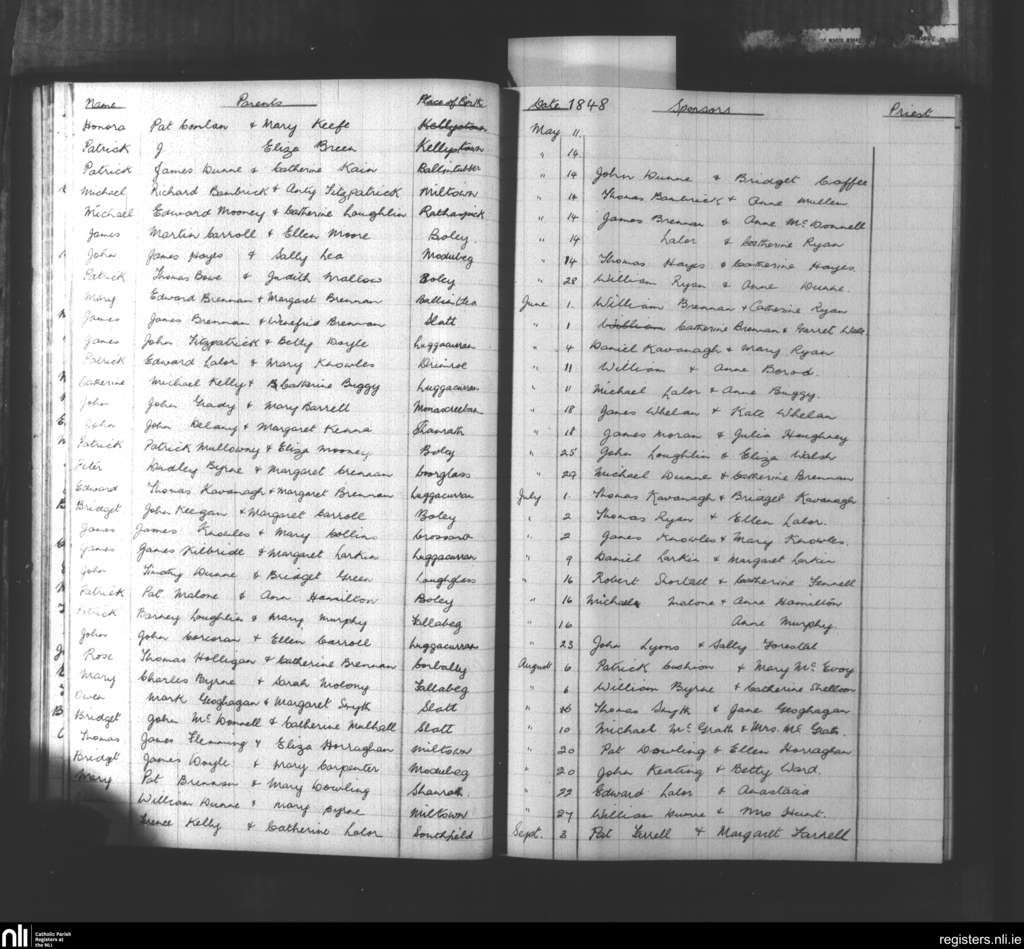 Name Parents Place of Birth Date 1848 Sponsors Priest
Honora Pat Conlan & Mary Keefe Kellystown May 11
Patrick J Eliza Breen Kellystown " 14
Patrick James Dunne & Catherine Kain Ballintubber " 14 John Dunne & Bridget Caffee
Michael Richard Banbrick & Anty Fitzpatrick Miltown " 14 Thomas Banbrick & Anne Mullen
Michael Edward Mooney & Catherine Loughlin Rathaspick " 14 James Brennan & Anne McDonnell
James Martin Carroll & Ellen Moore Boley. " 14 Lalor & Catherine Ryan
John James Hayes & Sally Lea Modubeg " 14 Thomas Hayes & Catherine Hayes.
Patrick Thomas Bowe & Judith Mallow Boley " 28 William Ryan & Anne Dunne.
Mary Edward Brennan & Margaret Brennan June 1. William Brennan & Catherine Ryan
James James Brennan & Winefrid Brennan Slatt " 1 William Catherine Brennan & Garret
James John Fitzpatrick & Betty Doyle Luggacurran " 4 Daniel Kavanagh & Mary Ryan
Patrick Edward Lalor & Mary Knowles Drimroe " 11 William & Anne Berod.
Catherine Michael Kelly & Catherine Buggy Luggacurran " 11 Michael Lalor & Anne Buggy.
John John Grady & Mary Barrell " 18 James Whelan & Kate Whelan
John John Delany & Margaret Kenna Shanrath " 18 James Moran & Julia Houghney
Patrick Patrick Mullowny & Eliza Mooney Boley " 25 John Loughlin & Eliza Walsh
Peter Radley Byrne & Margaret Crennan Coorglass " 29 Michael Dunne & Catherine Brennan
Edward Thomas Kavanagh & Margaret Brennan Luggacurran July 1. Thomas Kavanagh & Bridget Kavanagh
Bridget John Keegan & Margaret Carroll Boley " 2 Thomas Ryan & Ellen Lalor.
James James Knowles & Mary Collins Crossard " 2 James Knowles & Mary Knowles.
James James Kilbride & Margaret Larkin Luggacurran " 9 Daniel Larkin & Margaret Larkin
John Timothy Dunne & Bridget Green Loughglass " 16 Robert Shortall & Catherine Fennell
Patrick Pat Malone & Ann Hamilton Boley " 16 Michael Malone & Anne Hamilton
Patrick Barney Loughlin & Mary Murphy Fallabeg " 16 Anne Murphy
John John Corcoran & Ellen Carroll Luggacurran " 23 John Lyons & Sally Forestal
Rose Thomas Holligan & Catherine Brennan Corbally August 6 Patrick Cushion & Mary McEvoy
Mary Charles Byrne & Sarah Molony Fallabeg " 6 William Byrne & Catherine Shelloon
Owen Mark Geoghagan & Margaret Smyth Slatt " Thomas Smyth & Jane Geoghagan
Bridget John McDonnell & Catherine Mulhall Slatt " 10 Michael McGrath & Mrs. McGrath.
Thomas James Flemming & Eliza Horraghan Miltown " 20 Pat Dowling & Ellen Horraghan
Bridget James Doyle & Mary Carpenter Modubeg " 20 John Keating & Betty Ward.
Mary Pat Brennan & Mary Dowling Shanrath. " 22 Edward Lalor & Anastasia
William Dunne & Mary Byrne Miltown " 27 William Dunne & Mrs Hunt.
Kelly & Catherine Lalor Southfield Sept. 3 Pat Farrell & Margaret Farrell
nli Catholic Parish
Registers at
the NLI
registers.nli.ie